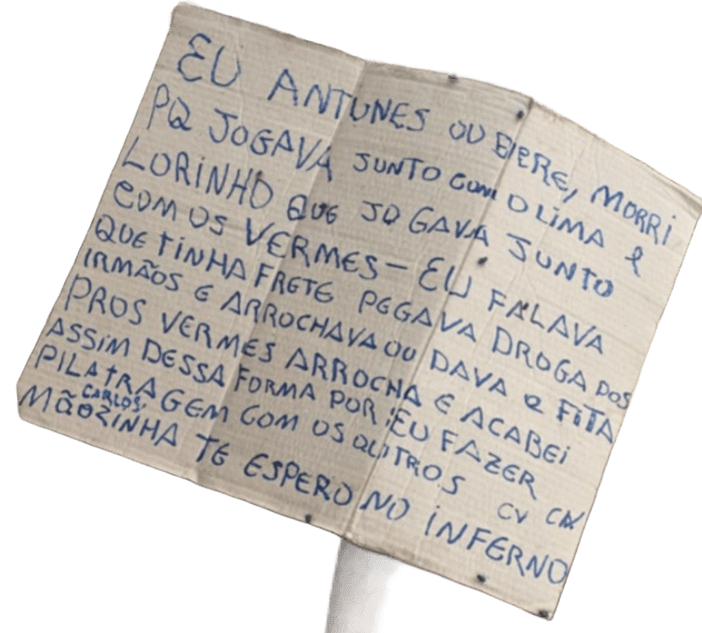 EU ANTUNES OU BERE, MORRI
PQ JOGAVA JUNTO COM O LIMA E
LORINHO QUE JOGAVA JUNTO
COM OS VERMES - EU FALAVA
QUE TINHA FRETE PEGAVA DROGA DOS
IRMÃOS E ARROCHAVA OU DAVA A FITA
PROS VERMES ARROCHA E ACABEI
ASSIM DESSA FORMA POR EU FAZER
PILATRAGEM COM OS OUTROS CV
CARLOS,
MÃOZINHA TE ESPERO NO INFERNO